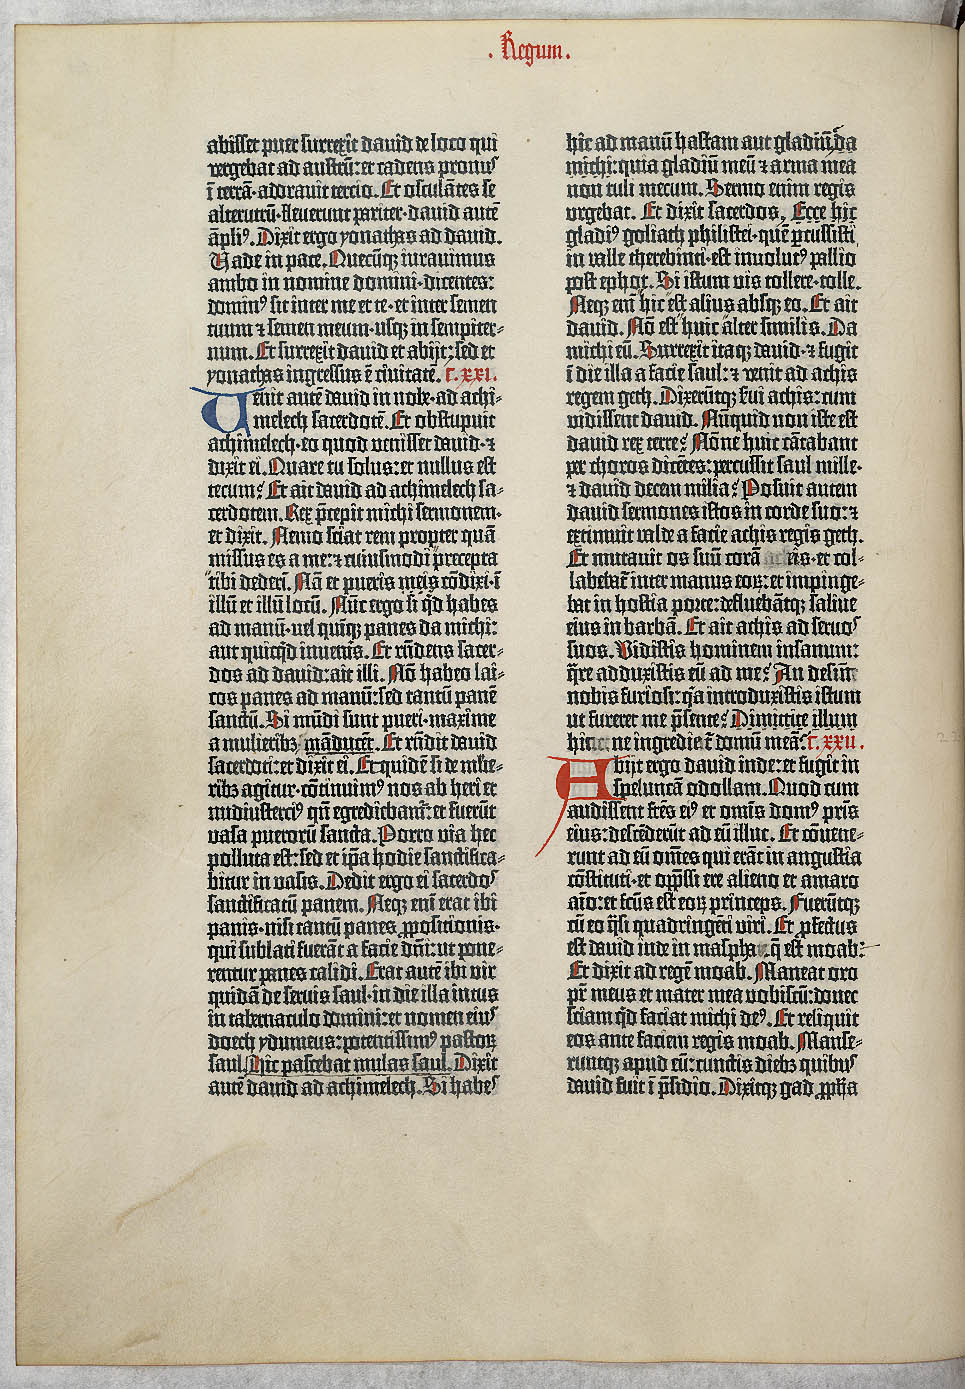 . Regum.
abisset puer surrexit david de loco qui
vergebat ad austrū: et cadens pronus
ī terrā· adoravit tercio. Et osculātes se
alterutrū· fleverunt pariter· david autē
āpli⁹. Dixit ergo yonathas ad david.
Vade in pace. Quecūqꝫ iuravimus
ambo in nomine domini· dicentes:
domin⁹ sit inter me et te· et inter semen
tuum ⁊ semen meum· usqꝫ in sempiter-
num. Et surrexit david et abijt: sed et
yonathas ingressus ē civitatē. c. xxi.
Venit autē david in nobe· ad achi-
melech sacerdotē. Et obstupuit
achimelech· eo quod venisset david· ⁊
dixit ei. Quare tu solus: et nullus est
tecum? Et ait david ad achimelech sa-
cerdotem. Rex p̄cepit michi sermonem·
et dixit. Nemo sciat rem propter quā
missus es a me: ⁊ cuiusmodi precepta
tibi dederī. Nā et pueris meis cōdixi· ī
illū et illū locū. Nūc ergo si qd̄ habes
ad manū· vel quīqꝫ panes da michi:
aut quicqd̄ inuenis. Et rn̄dens sacer-
dos ad david: ait illi. Nō habeo lai-
cos panes ad manū: sed tantū panē
sanctū. Si mūdi sunt pueri· maxime
a mulieribꝫ manducēt. Et rn̄dit david
sacerdoti: et dixit ei. Et quidē si de mulie-
ribꝫ agitur· cōtinuim⁹ nos ab heri et
nudiusterci⁹ qn̄ egrediebamr̄: et fuerūt
vasa puerorū sancta. Porro via hec
polluta est: sed et ip̄a hodie sanctifica-
bitur in vasis. Dedit ergo ei sacerdos
sanctificatū panem. Neqꝫ enī erat ibi
panis· nisi tantū panes ꝓpositionis·
qui sublati fuerāt a facie dn̄i: ut pone-
rentur panes calidi. Erat autē ibi vir
quidā de servis saul· in die illa intus
in tabernaculo domini: et nomen eius
doech ydumeus: potentissim⁹ pastoꝝ
saul. Hic pascebat mulas saul. Dixit
autē david ad achimelech. Si habes
hic ad manū hastam aut gladiū· da
michi: quia gladiū meū ⁊ arma mea
non tuli mecum. Sermo enim regis
urgebat. Et dixit sacerdos. Ecce hic
gladi⁹ goliath philistei· quē p̄cussisti
in valle therebinti· est involut⁹ pallio
post ephot. Si istum vis tollere· tolle.
Neqꝫ enī hic est alius absqꝫ eo. Et ait
david. Nō est huic alter similis. Da
michi eū. Surrexit itaqꝫ david· ⁊ fugit
ī die illa a facie saul: ⁊ venit ad achis
regem geth. Dixerūtqꝫ servi achis: cum
vidissent david. Nūquid non iste est
david rex terre? Nōne huic cātabant
per choros dicētes: percussit saul mille·
⁊ david decem milia? Posuit autem
david sermones istos in corde suo: ⁊
extimuit valde a facie achis regis geth.
Et mutavit os suū corā achis· et col-
labebat̄ inter manus eoꝝ: et impinge-
bat in hostia porte: defluebātqꝫ salive
eius in barbā. Et ait achis ad servos
suos. Vidistis hominem insanum:
qr̄e adduxistis eū ad me? An desunt
nobis furiosi: qa introduxistis istum
ut fureret me p̄sente? Dimittite illum
hinc ne ingrediat̄ domū meā. c. xxii.
Abijt ergo david inde: et fugit in
speluncā odollam. Quod cum
audissent fr̄es ei⁹ et omīs dom⁹ pr̄is
eius: descēderūt ad eū illuc. Et cōvene-
runt ad eū om̄es qui erāt in angustia
cōstituti· et opp̄ssi ere alieno et amaro
aīo: et fc̄us est eoꝝ princeps. Fuerūtqꝫ
cū eo qͥsi quadringēti viri. Et ꝓfectus
est david inde in maspha· q̄ est moab:
Et dixit ad regē moab. Maneat oro
pr̄ meus et mater mea vobiscū: donec
sciam qd̄ faciat michi de⁹. Et reliquit
eos ante faciem regis moab. Manse-
runtqꝫ apud eū: cunctis diebꝫ quibus
david fuit ī p̄sidio. Dixitqꝫ gad ꝓph̄a